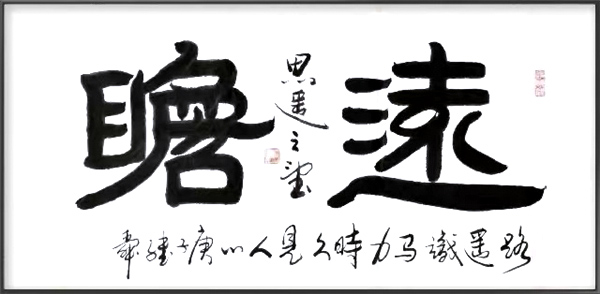 遠瞻
思遥之望
路遥識马力時久見人心庚子